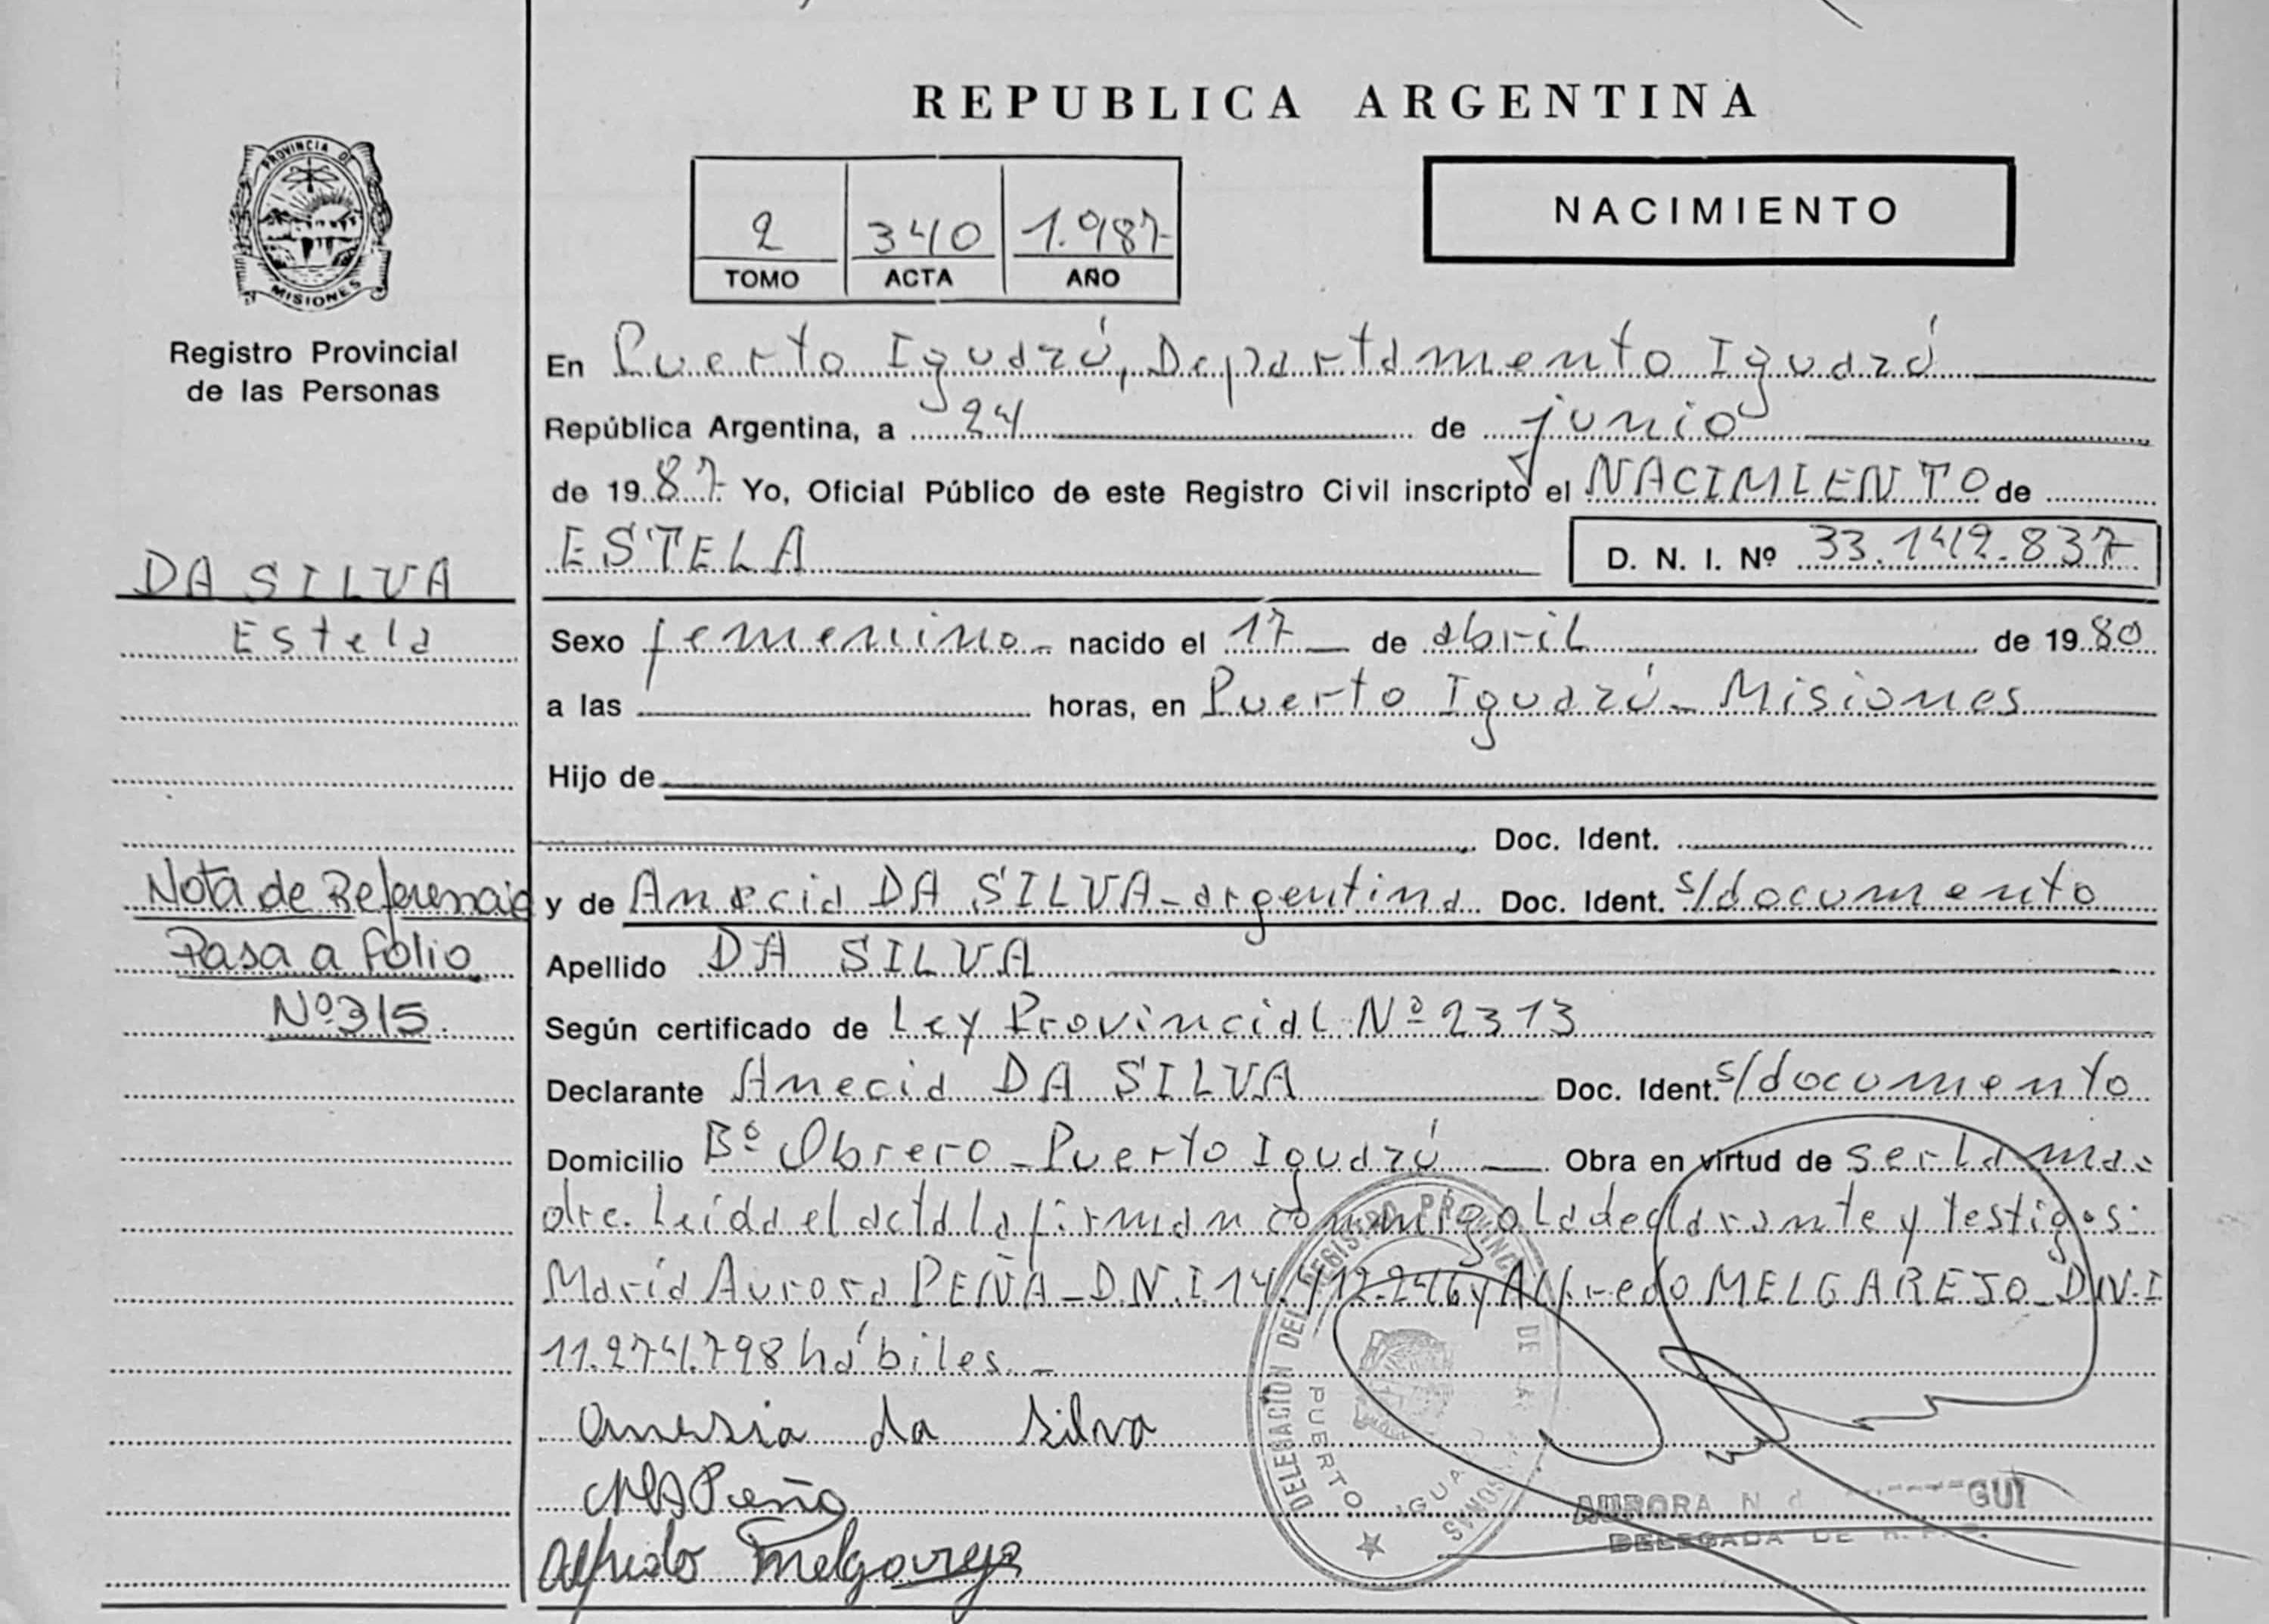 REPUBLICA ARGENTINA
PROVINCIA DE
MISIONES
Registro Provincial
de las Personas
2 340 1.987
TOMO ACTA AÑO
NACIMIENTO
En Puerto Iguazú, Departamento Iguazú
República Argentina, a 24 de junio
de 1987 Yo, Oficial Público de este Registro Civil inscripto el NACIMIENTO de
ESTELA D. N. I. Nº 33.142.837
DA SILVA
Estela
Sexo femenino nacido el 17 de abril de 1980
a las horas, en Puerto Iguazú - Misiones
Hijo de
Doc. Ident.
Nota de Referencia
Pasa a folio
Nº 315
y de Anecia DA SILVA - argentina Doc. Ident. s/documento
Apellido DA SILVA
Según certificado de Ley Provincial Nº 2313
Declarante Anecia DA SILVA Doc. Ident. s/documento
Domicilio Bº Obrero - Puerto Iguazú Obra en virtud de ser la ma-
dre. Leída el acta la firman conmigo la declarante y testigos:
María Aurora PEÑA - D.N.I 14.412.246 y Alfredo MELGAREJO - D.N.I
11.274.798 hábiles. -
Anersia da Silva
Peña
Alfredo Melgarejo
DELEGACION DEL REGISTRO PROVINCIAL DE LAS PERSONAS
PUERTO IGUAZU
AURORA N. d GUI
DELEGADA DE R. P. P.